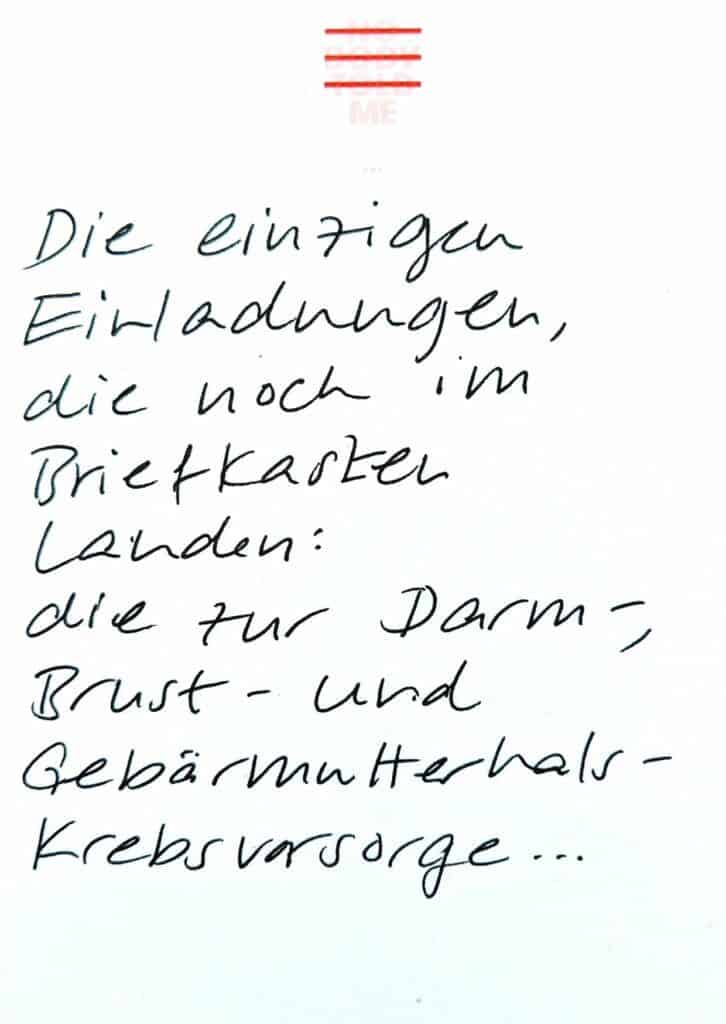 NO
BODY
TOLD
ME
...
Die einzigen
Einladungen,
die noch im
Briefkasten
landen:
die zur Darm-,
Brust- und
Gebärmutterhals-
Krebsvorsorge...